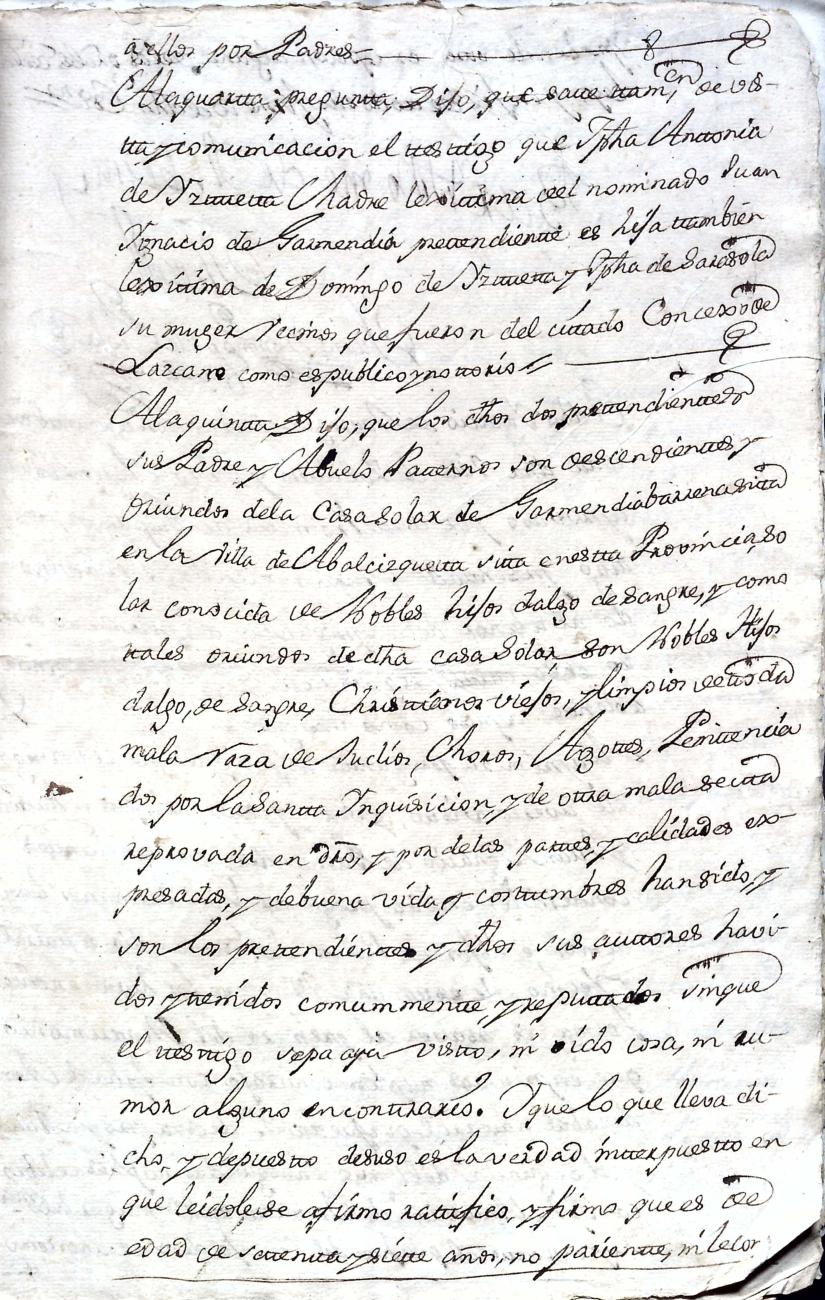 a ellos por Padres
A la quartta preguntta, Dijo, que save ttamvien de vis-
tta y comunicacion el ttesttigo que Jpha Anttonia
de Yzttuetta Madre lexittima del nominado Juan
Ygnacio de Garmendia prettendientte es hija ttambien
lexittima de Domingo de Yzttuetta y Jpha de Sarasola
su muger vecinos que fueron del cittado Concexo de
Lazcano como es publico y nottorio
A la quintta Dijo, que los dhos dos prettendienttes
sus Padre y Abuelo Patternos son descendienttes y
oriundos de la Casa Solar de Garmendiabarrena sitta
en la Villa de Abalcizquetta sitta en estta Provincia, so
lar conocida de Nobles hijos dalgo de sangre, y como
ttales oriundos de dha casa Solar son Nobles Hijos
dalgo, de sangre, Christtianos viejos, y limpios de ttoda
mala raza de Judios, Moros, Agottes, Penittencia
dos por la Santta Ynquisicion, y de ottra mala sectta
reprovada en dro, y por de las parttes, y calidades ex-
presadas, y de buena vida y costtumbres han sido, y
son los prettendienttes y dhos sus auttores havi-
dos y ttenidos comunmentte, y reputtados sin que
el ttesttigo sepa aya vistto, ni oido cosa, ni ru-
mor alguno en conttrario. Y que lo que lleva di-
cho, y depuestto desuso es la verdad intterpuestto en
que leidole se afirmo rattifico, y firmo que es de
edad de settentta y siette años, no parientte, ni le cor